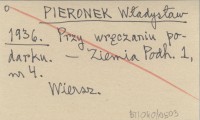 PIERONEK Władysław
1936. Przy wręczaniu po-
darku. — Ziemia Podh. 1,
nr 4.
Wiersz.